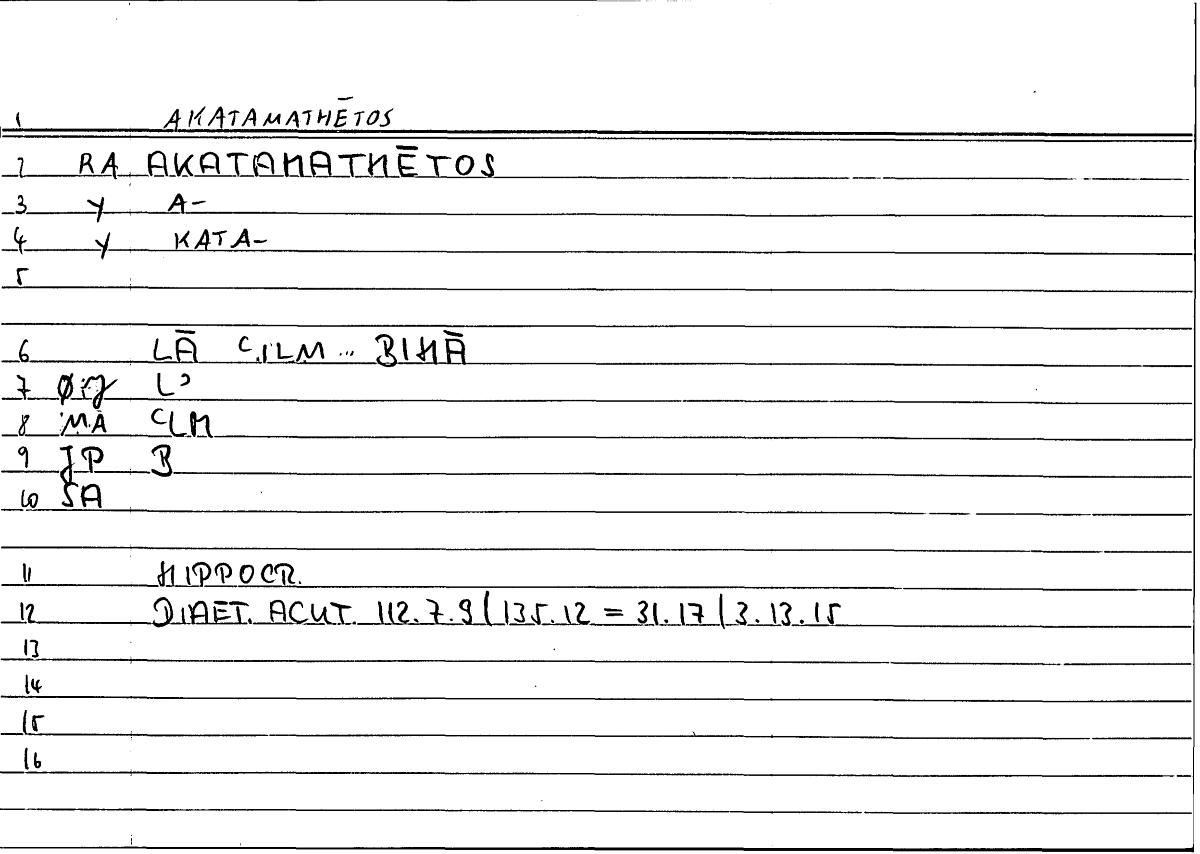 1 AKATAMATHĒTOS
2 RA AKATAMATHĒTOS
3 Y A-
4 Y KATA-
5
6 LĀ ʿILM ... BIHĀ
7 L'
8 MA ʿLM
9 JP B
10 SA
11 HIPPOCR.
12 DIAET. ACUT. 112.7.9 | 135.12 = 31.17 | 3.13.15
13
14
15
16